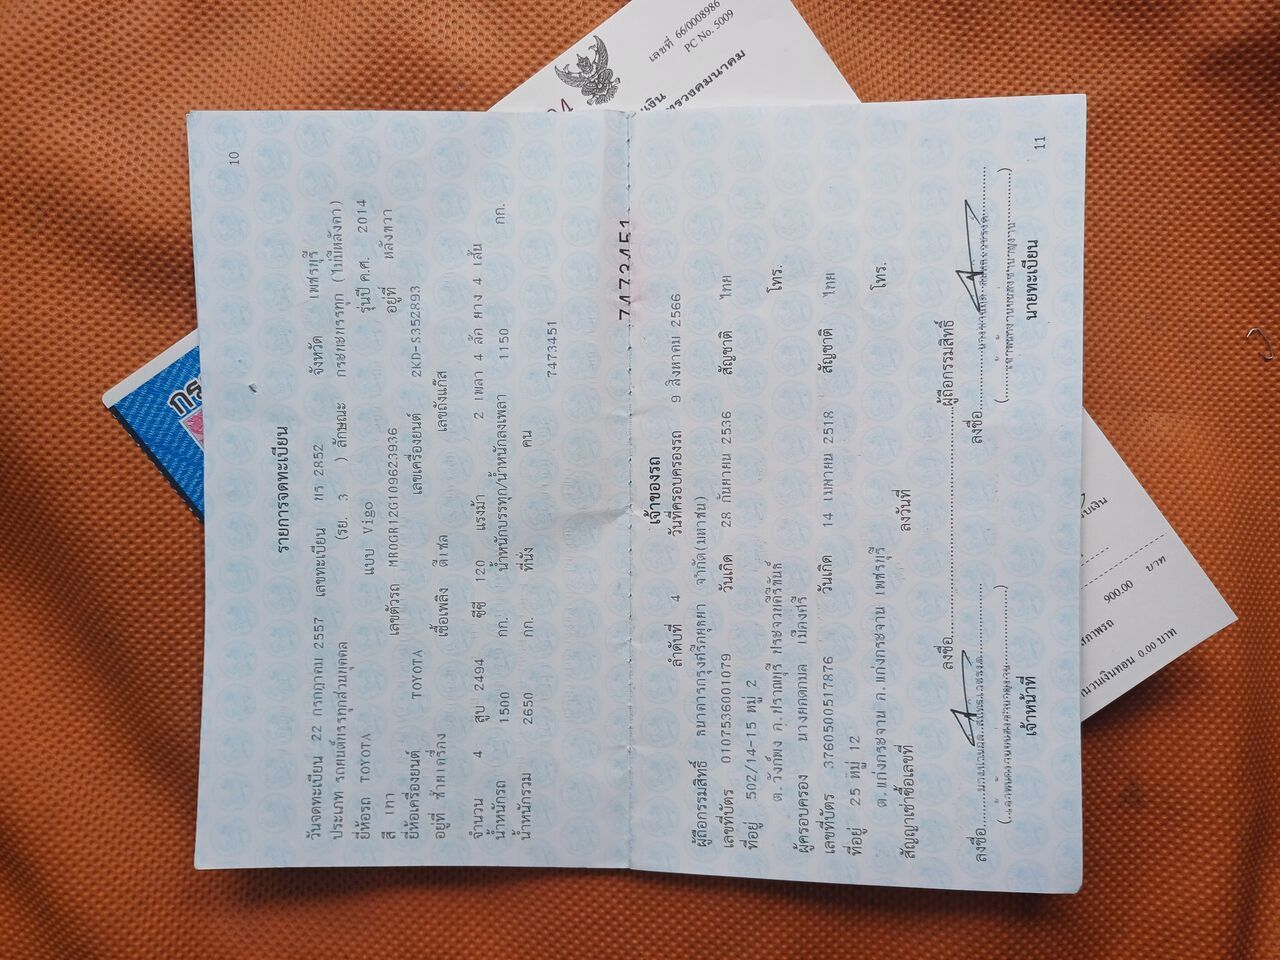 10
รายการจดทะเบียน
วันจดทะเบียน 22 กรกฎาคม 2557 เลขทะเบียน 2852 จังหวัด เพชรบุรี
ประเภท รถยนต์บรรทุกส่วนบุคคล (รย. 3 ) ลักษณะ กระบะบรรทุก (ไม่มีหลังคา)
ยี่ห้อรถ TOYOTA แบบ Vigo รุ่นปี ค.ศ. 2014
สี เทา เลขตัวรถ MR0GR12G109623936 อยู่ที่ หลังขวา
ยี่ห้อเครื่องยนต์ TOYOTA เลขเครื่องยนต์ 2KD-S352893
อยู่ที่ ซ้ายเครื่อง เชื้อเพลิง ดีเซล เลขถังแก๊ส
จำนวน 4 สูบ 2494 ซีซี 120 แรงม้า 2 เพลา 4 ล้อ ยาง 4 เส้น
น้ำหนักรถ 1500 กก. น้ำหนักบรรทุก/น้ำหนักลงเพลา 1150 กก.
น้ำหนักรวม 2650 กก. ที่นั่ง คน
7473451
7473451
เจ้าของรถ
ลำดับที่ 4 วันที่ครอบครองรถ 9 สิงหาคม 2566
ผู้ถือกรรมสิทธิ์ ธนาคารกรุงศรีอยุธยา จำกัด(มหาชน)
เลขที่บัตร 0107536001079 วันเกิด 28 กันยายน 2536 สัญชาติ ไทย
ที่อยู่ 502/14-15 หมู่ 2 โทร.
ต.วังก์พง อ.ปราณบุรี ประจวบคีรีขันธ์
ผู้ครอบครอง
เลขที่บัตร 3760500517876 วันเกิด 14 เมษายน 2518 สัญชาติ ไทย
ที่อยู่ 25 หมู่ 12 โทร.
ต.แก่งกระจาน อ.แก่งกระจาน เพชรบุรี
สัญญาเช่าซื้อเลขที่ ลงวันที่
ลงชื่อ ผู้ถือกรรมสิทธิ์
ลงชื่อ ลงชื่อ
เจ้าหน้าที่ นายทะเบียน
11
เลขที่ 66/0008986
PC No. 5009
900.00 บาท
0.00 บาท